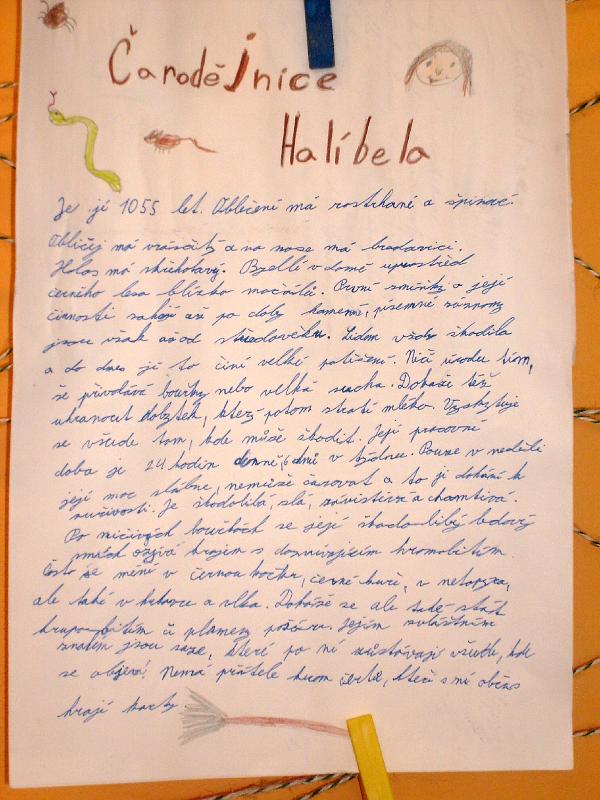 Čarodějnice
Halíbela
Je jí 1055 let. Oblečení má roztrhané a špinavé.
Obličej má vrásčitý a na nose má bradavici.
Hlas má skřehotavý. Bydlí v domě uprostřed
černého lesa blízko močálů. První zmínky o její
činnosti sahají až po doby kamenné, písemné záznamy
jsou však až od středověku. Lidem vždy škodila
a do dnes jí to činí velké potěšení. Ničí úrodu tím,
že přivolává bouřky nebo velká sucha. Dokáže též
uhranout dobytek, který potom ztratí mléko. Vyskytuje
se všude tam, kde může škodit. Její pracovní
doba je 24 hodin denně, 6 dnů v týdnu. Pouze v neděli
její moc slábne, nemůže čarovat a to ji dohání k
zuřivosti. Je škodolibá, zlá, závistivá a chamtivá.
Po ničivých bouřkách se její škodolibý ledový
smích ozývá krajem s doznívajícím hromobitím.
Často se mění v černou kočku, černé kuře, v netopýra,
ale také v krkavce a vlka. Dokáže se ale také stát
krupobitím či plamenem požáru. Jejím zvláštním
znakem jsou saze, které po ní zůstávají všude, kde
se objeví! Nemá přátele krom čertů, kteří s ní občas
hrají karty